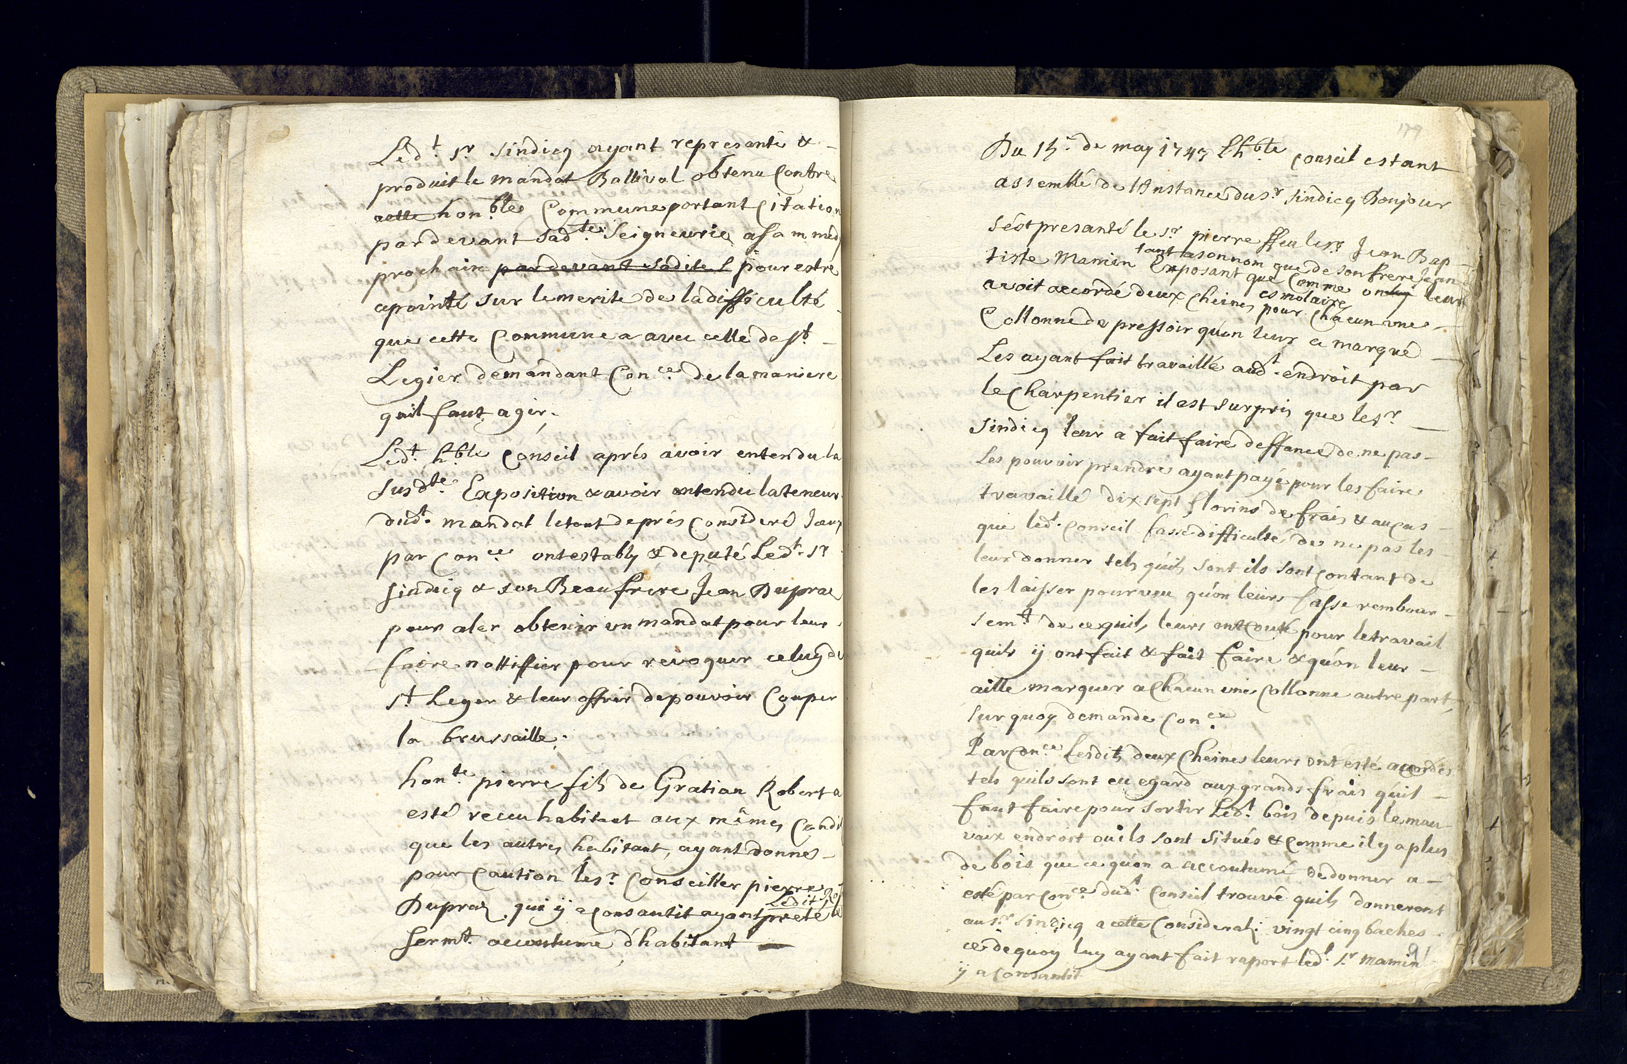 Led.t S.r Sindicq ayant represanté &
produit le mandat Ballival obtenu Contre
cette hon.ble Commune portant Citation
pardevant Sad.te Seigneurie a Sammedÿ
prochain pardevant sadite S pour estre
apointé sur le merite de la difficulté
que cette Commune a avec celle de S.t
Legier demandant Con.ce de la maniere
quil faut agir.
Led.t h.ble Conseil aprés avoir entendu la
Susd.te Exposition & avoir entendu la teneur
dud.t mandat le tout de prés Consideré
par Con.ce ont establÿ & deputé Led.t S.r
Sindicq & son Beaufrere Jean Dupraz
pour aler obtenir un mandat pour leur
faire nottiffier pour revoquer celuÿ de
S.t Leger & leur offrir de pouvoir Couper
la brussaille.
hon.te pierre fils de Gratian Robert a
esté receu habitant aux mêmes Condi
que les autres habitant, ayant donné
pour Caution le S.r Conseiller pierre
Dupraz qui ÿ a Consantit ayant preté le
Serm.t accoutumé d'habitant
179
Du 15.e de may 1747 Lh.ble Conseil estant
assemblé de l'Instance du S.r Sindicq Bonjour
S'est presanté le S.r pierre ffeu le S.r Jean Bap
tiste Mamin tant a son nom que de son frere Jean
Exposant que Comme on luy leur
avoit accordé deux Cheines pour Chacun une
Collonne de pressoir qu'on leur a marqué
Les ayant fait travaillé aud.t endroit par
le Charpentier il est surpris que le S.r
Sindicq leur a fait faire deffance de ne pas
Les pouvoir prendre ayant payé pour les faire
travaillé dix sept florins de frais & au cas
que led.t Conseil fasse difficulté de ne pas les
leur donner tels qu'ils sont ils sont contant de
les laisser pourveu qu'on leurs fasse rembour
sem.t de ce quils leurs ont couté pour le travail
quils ÿ ont fait & fait faire & qu'on leur
aille marquer a Chacun une Collonne autre part,
Sur quoy demande Con.ce
Par Con.ce Lesdits deux Cheines leurs ont esté accordés
tels quils sont eu egard aux grands frais quil
faut faire pour sortir Led.t bois depuis le mau
vaix endroit ou ils sont Situés & comme il y a plus
de bois que ce quon a accoutumé de donner a
esté par Con.ce dud.t Conseil trouvé quils donneront
au S.r Sindicq a cette Considerat. vingt cinq baches
ce de quoy luy ayant fait raport led.t S.r Mamin
ÿ a Consantit
91